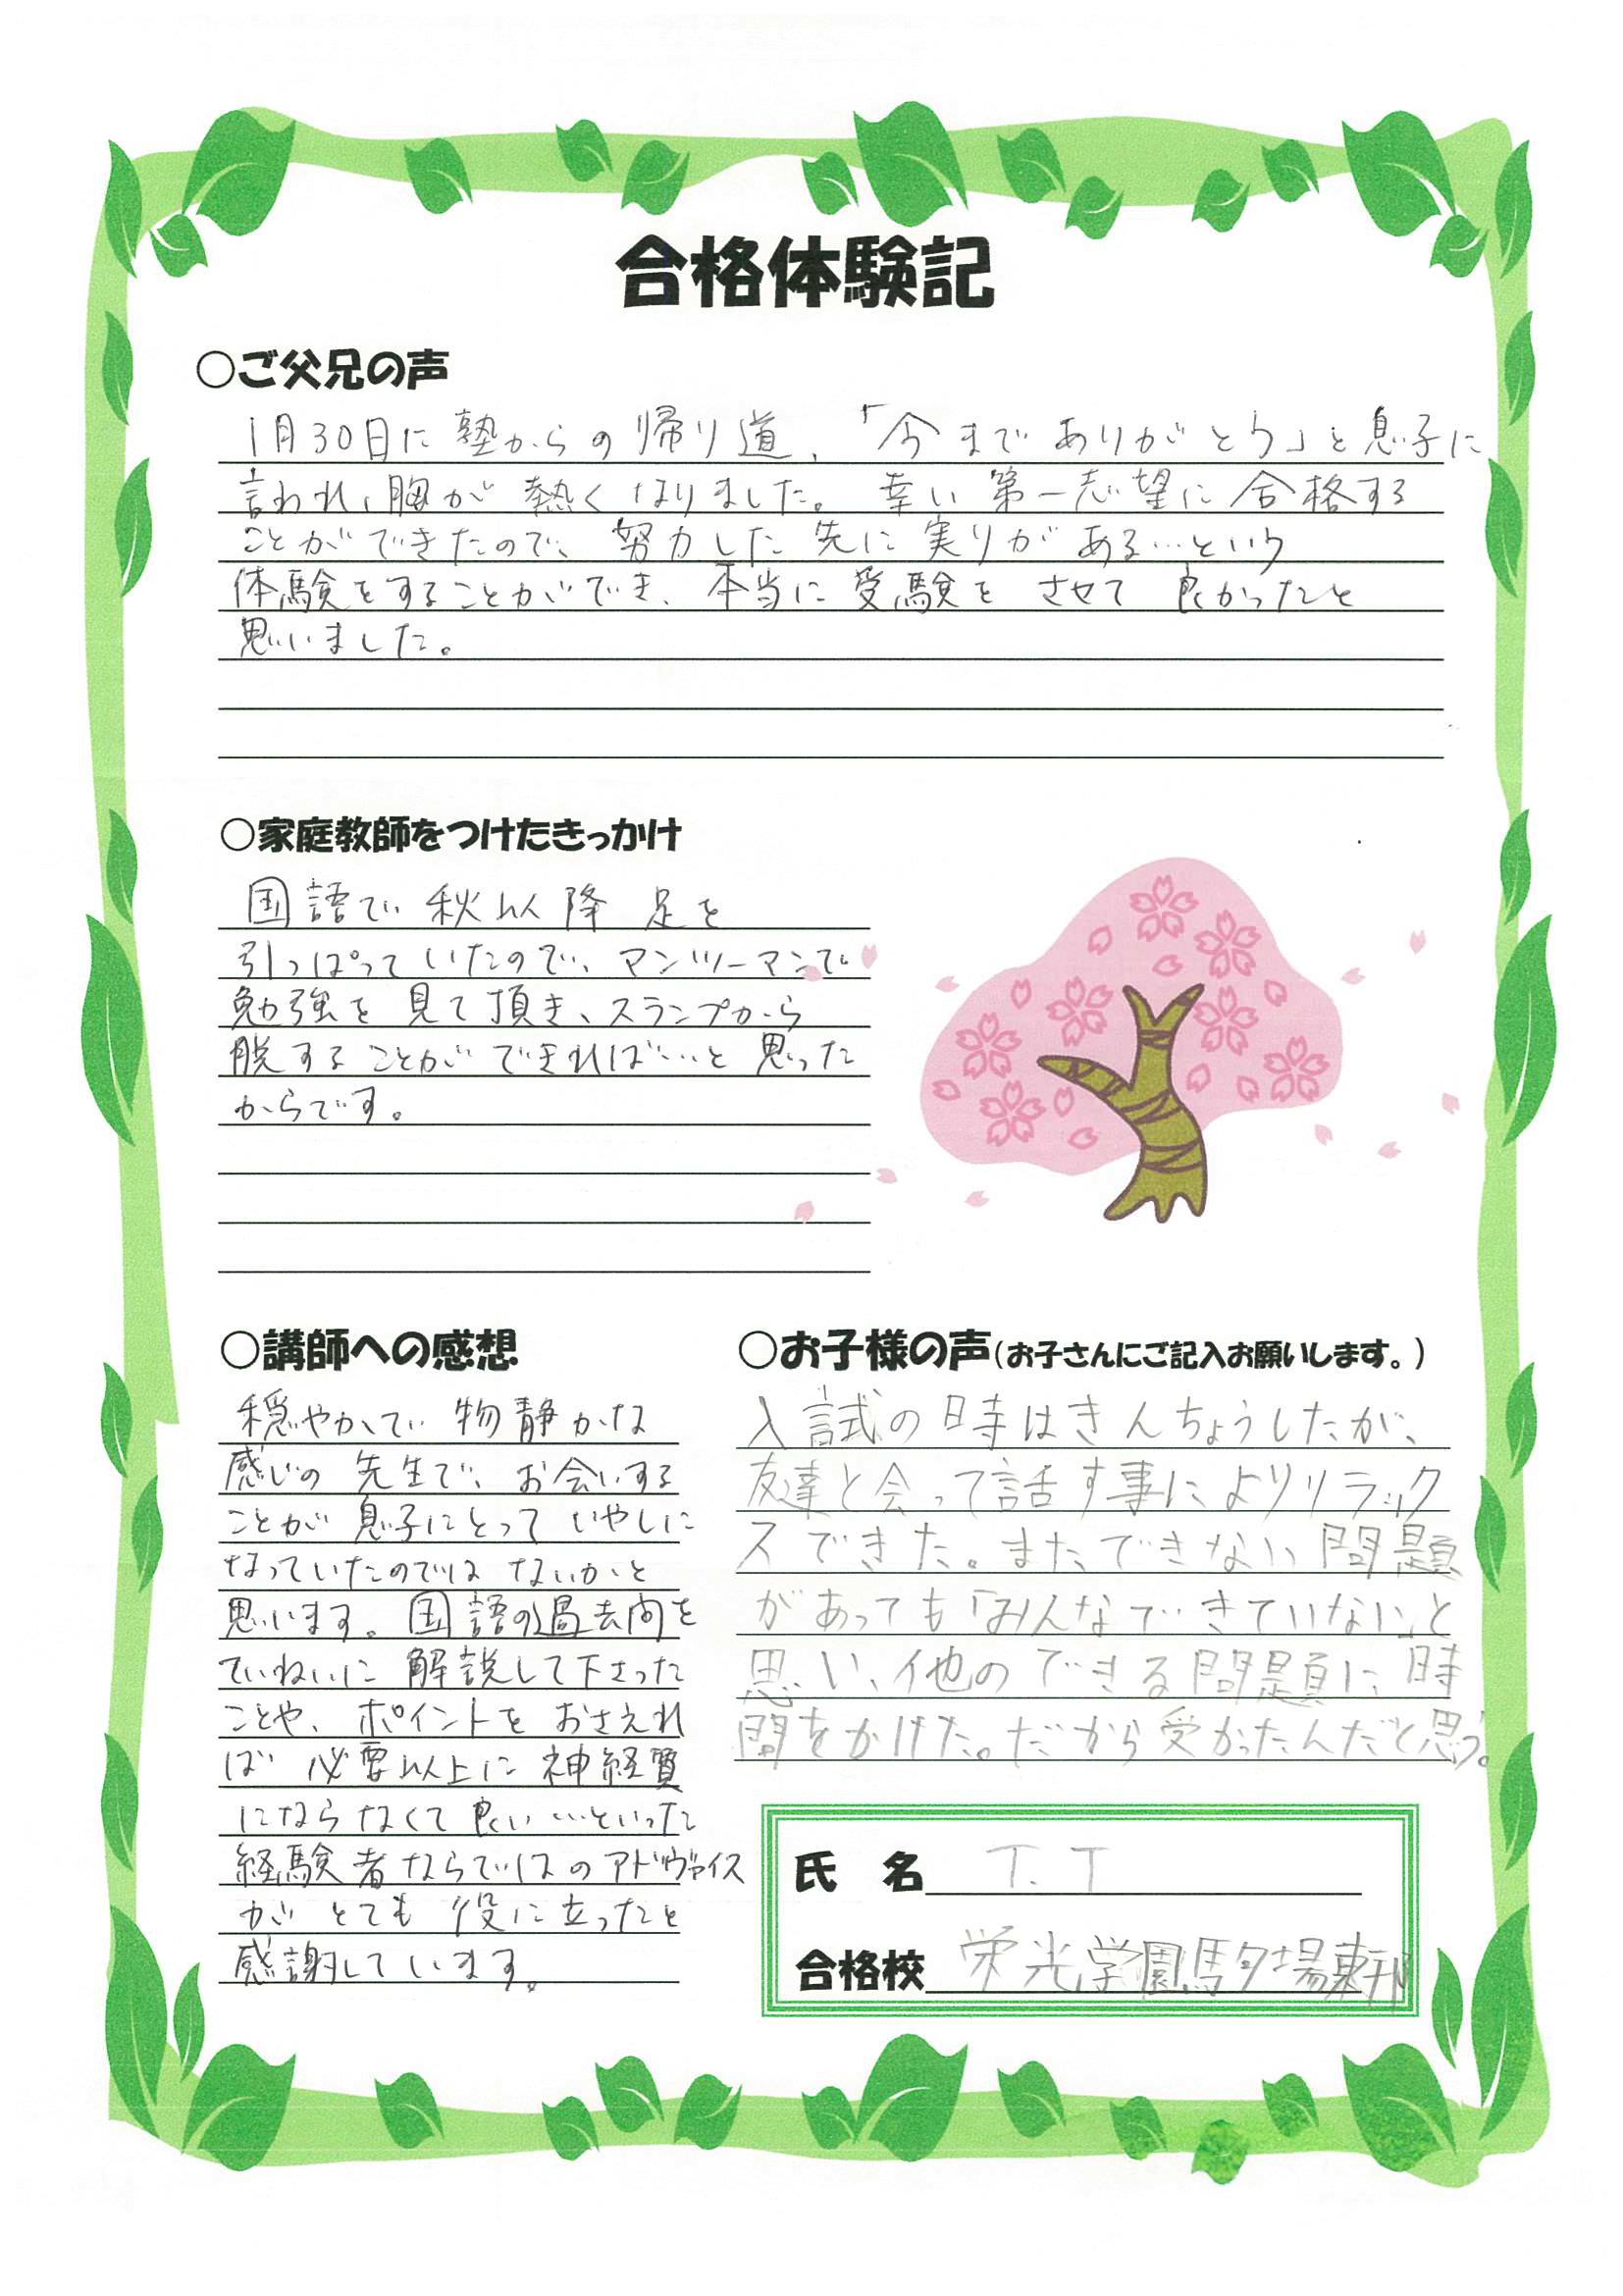 合格体験記
○ご父兄の声
1月30日に塾からの帰り道、「今までありがとう」と息子に
言われ、胸が熱くなりました。幸い第一志望に合格する
ことができたので、努力した先に実りがある…という
体験をすることができ、本当に受験をさせて良かったと
思いました。
○家庭教師をつけたきっかけ
国語で秋以降足を
引っぱっていたので、マンツーマンで
勉強を見て頂き、スランプから
脱することができれば…と思った
からです。
○講師への感想
穏やかで物静かな
感じの先生で、お会いする
ことが息子にとっていやしに
なっていたのではないかと
思います。国語の過去問を
ていねいに解説して下さった
ことや、ポイントをおさえれ
ば必要以上に神経質
にならなくて良い…といった
経験者ならではのアドヴァイス
がとても役に立ったと
感謝しています。
○お子様の声(お子さんにご記入お願いします。)
入試の時はきんちょうしたが、
友達と会って話す事によりリラック
スできた。またできない問題
があっても「みんなできていない」と
思い、他のできる問題に時
間をかけた。だから受かったんだと思う。
氏 名 T.T
合格校 栄光学園駒場東邦